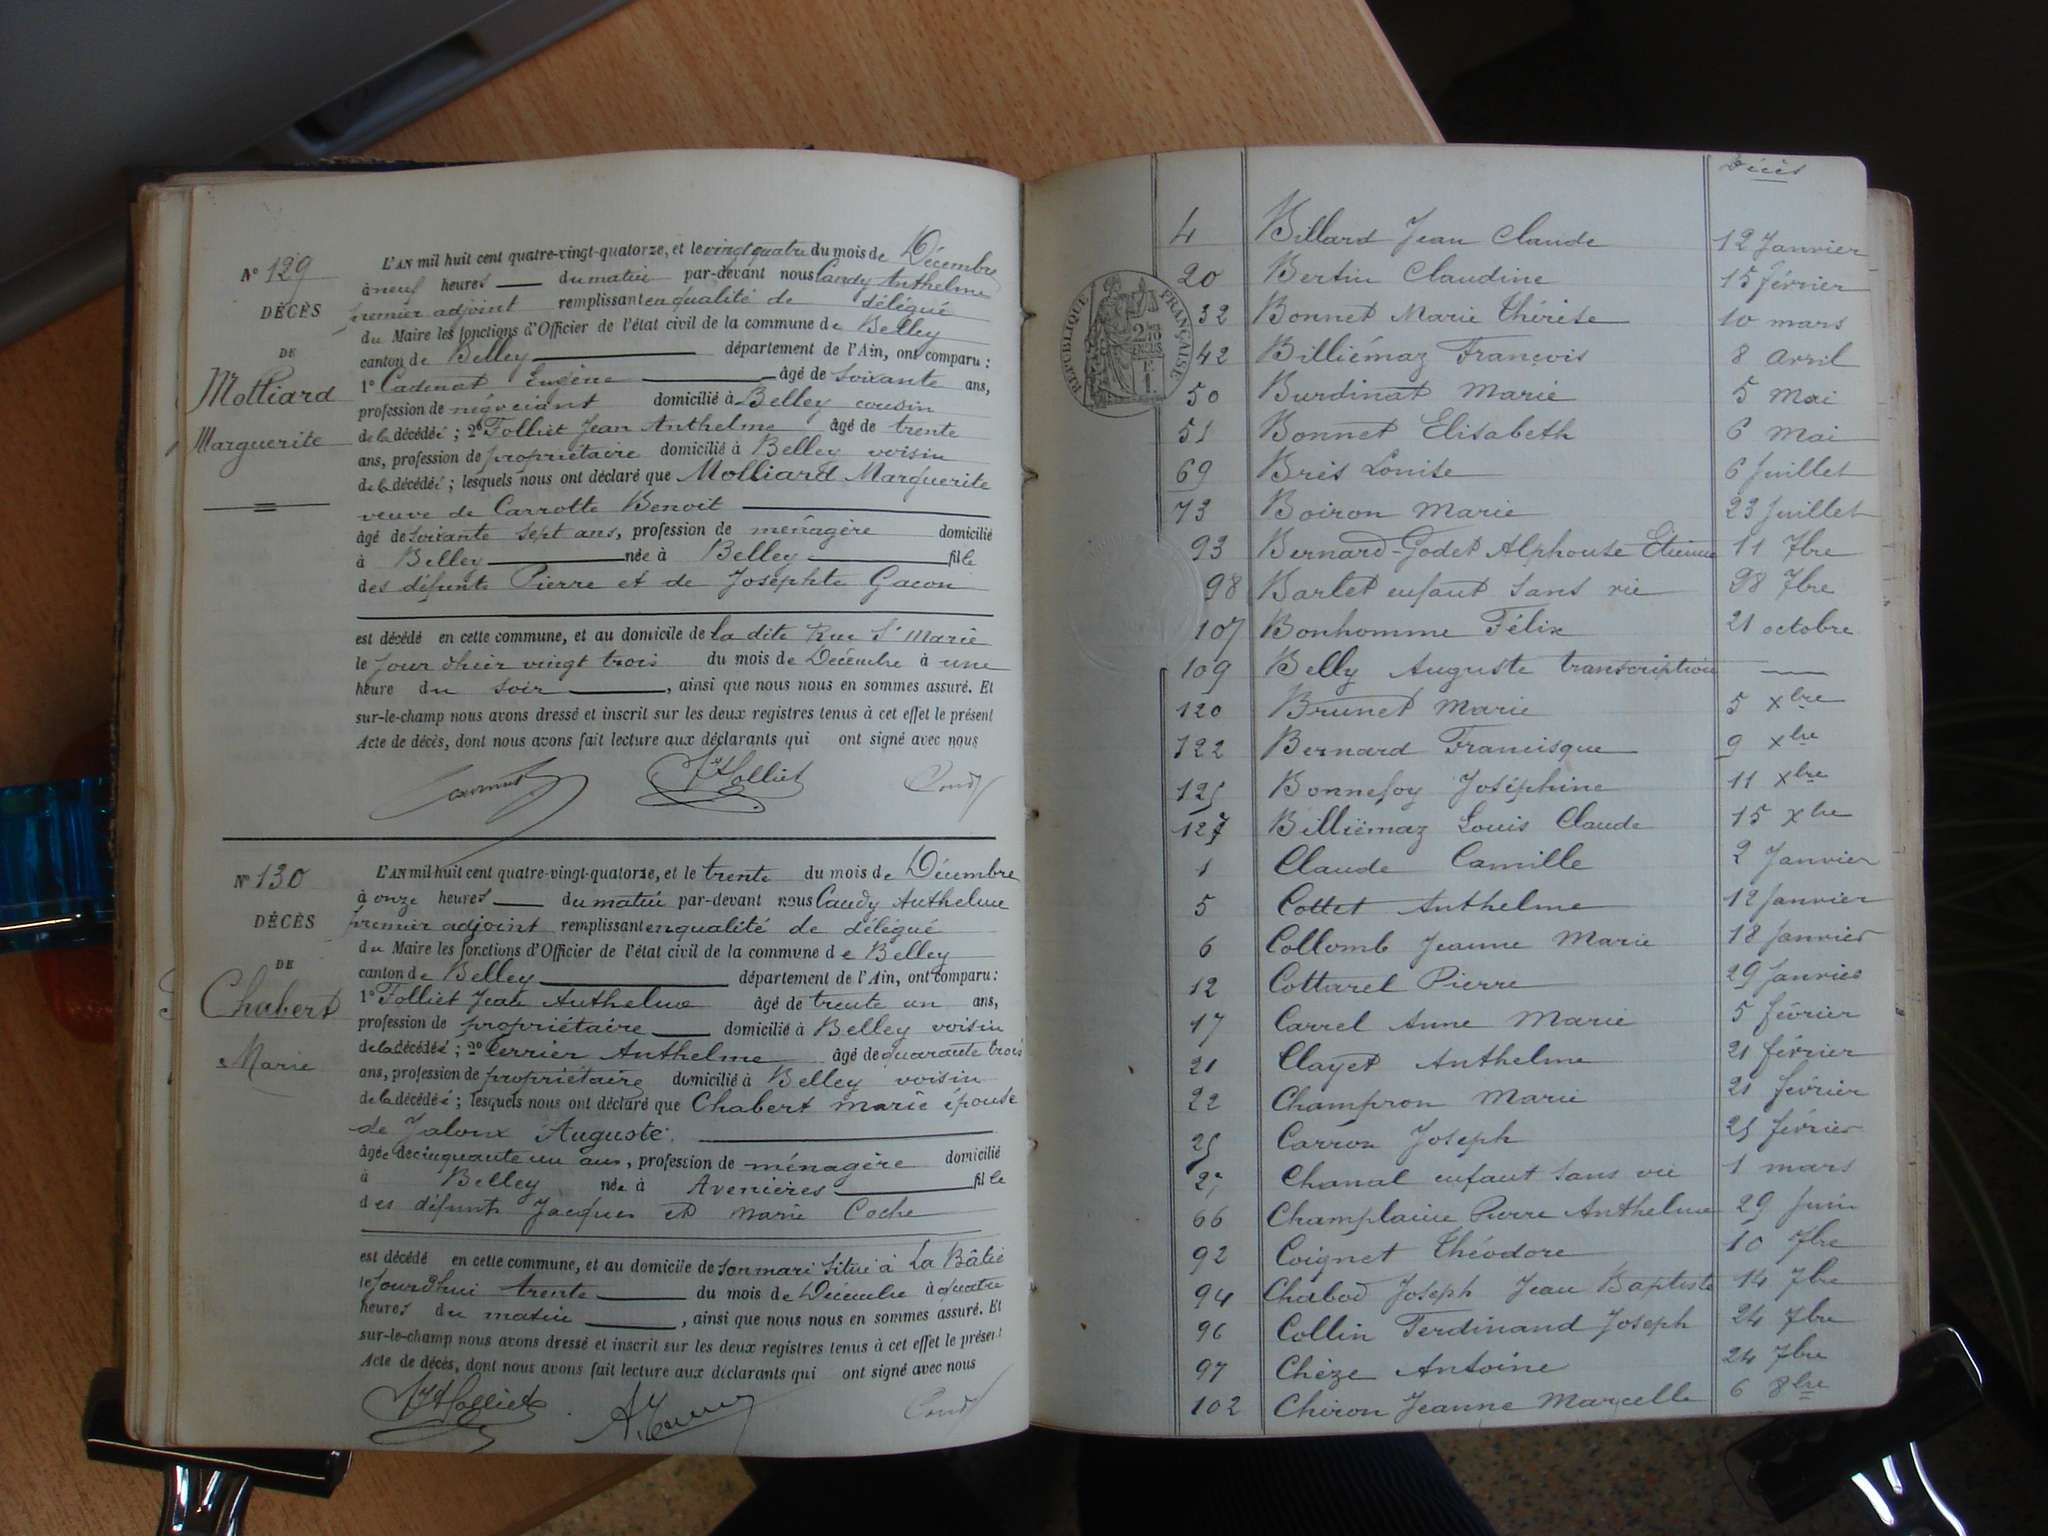 N° 129
DÉCÈS
DE
Molliard
Marguerite
L'AN mil huit cent quatre-vingt-quatorze, et le vingt quatre du mois de Décembre
à neuf heures du matin par-devant nous Candy Anthelme
premier adjoint remplissant en qualité de délégué
du Maire les fonctions d'Officier de l'état civil de la commune de Belley
canton de Belley département de l'Ain, ont comparu :
1° Cadenat Eugène âgé de soixante ans,
profession de négociant domicilié à Belley cousin
de la décédée ; 2° Folliet Jean Anthelme âgé de trente
ans, profession de propriétaire domicilié à Belley voisin
de la décédée ; lesquels nous ont déclaré que Molliard Marguerite
veuve de Carrotte Benoit
âgé de soixante sept ans, profession de ménagère domicilié
à Belley née à Belley fille
des défunts Pierre et de Josephte Gacon
est décédé en cette commune, et au domicile de la dite Rue St Marie
le jour d'hier vingt trois du mois de Décembre à une
heure du soir, ainsi que nous nous en sommes assuré. Et
sur-le-champ nous avons dressé et inscrit sur les deux registres tenus à cet effet le présent
Acte de décès, dont nous avons fait lecture aux déclarants qui ont signé avec nous
JA Folliet
Candy
N° 130
DÉCÈS
DE
Chabert
Marie
L'AN mil huit cent quatre-vingt-quatorze, et le trente du mois de Décembre
à onze heures du matin par-devant nous Candy Anthelme
premier adjoint remplissant en qualité de délégué
du Maire les fonctions d'Officier de l'état civil de la commune de Belley
canton de Belley département de l'Ain, ont comparu :
1° Folliet Jean Anthelme âgé de trente un ans,
profession de propriétaire domicilié à Belley voisin
de la décédée ; 2° Terrier Anthelme âgé de quarante trois
ans, profession de propriétaire domicilié à Belley voisin
de la décédée ; lesquels nous ont déclaré que Chabert marie épouse
de Jaloux Auguste.
âgée de cinquante un ans, profession de ménagère domicilié
à Belley née à Avenières fille
des défunts Jacques et Marie Coche
est décédé en cette commune, et au domicile de son mari situé à La Bâtie
le jourd'hui trente du mois de Décembre à quatre
heures du matin, ainsi que nous nous en sommes assuré. Et
sur-le-champ nous avons dressé et inscrit sur les deux registres tenus à cet effet le présent
Acte de décès, dont nous avons fait lecture aux déclarants qui ont signé avec nous
JA Folliet
Candy
Décès
RÉPUBLIQUE FRANÇAISE
4 Billard Jean Claude 12 Janvier
20 Bertin Claudine 15 février
32 Bonnet Marie Thérèse 10 mars
42 Billiémaz François 8 avril
50 Burdinat Marie 5 Mai
51 Bonnet Elisabeth 6 Mai
69 Bris Louise 6 Juillet
73 Boiron Marie 23 Juillet
93 Bernard-Godet Alphonse Etienne 11 7bre
98 Barlet enfant sans vie 98 7bre
107 Bonhomme Félix 21 octobre
109 Belly Auguste transcription
120 Brunet Marie 5 Xbre
122 Bernard Francisque 9 Xbre
125 Bonnefoy Joséphine 11 Xbre
127 Billiémaz Louis Claude 15 Xbre
1 Claude Camille 2 Janvier
5 Cottet Anthelme 12 Janvier
6 Collomb Jeanne Marie 18 Janvier
12 Cottarel Pierre 29 Janvier
17 Carrel Anne Marie 5 février
21 Clayet Anthelme 21 février
22 Champron Marie 21 février
25 Carron Joseph 25 février
27 Chanal enfant sans vie 1 mars
66 Champlaine Pierre Anthelme 29 Juin
92 Coignet Théodore 10 7bre
94 Chabod Joseph Jean Baptiste 14 7bre
96 Collin Ferdinand Joseph 24 7bre
97 Chèze Antoine 24 7bre
102 Chiron Jeanne Marcelle 6 8bre